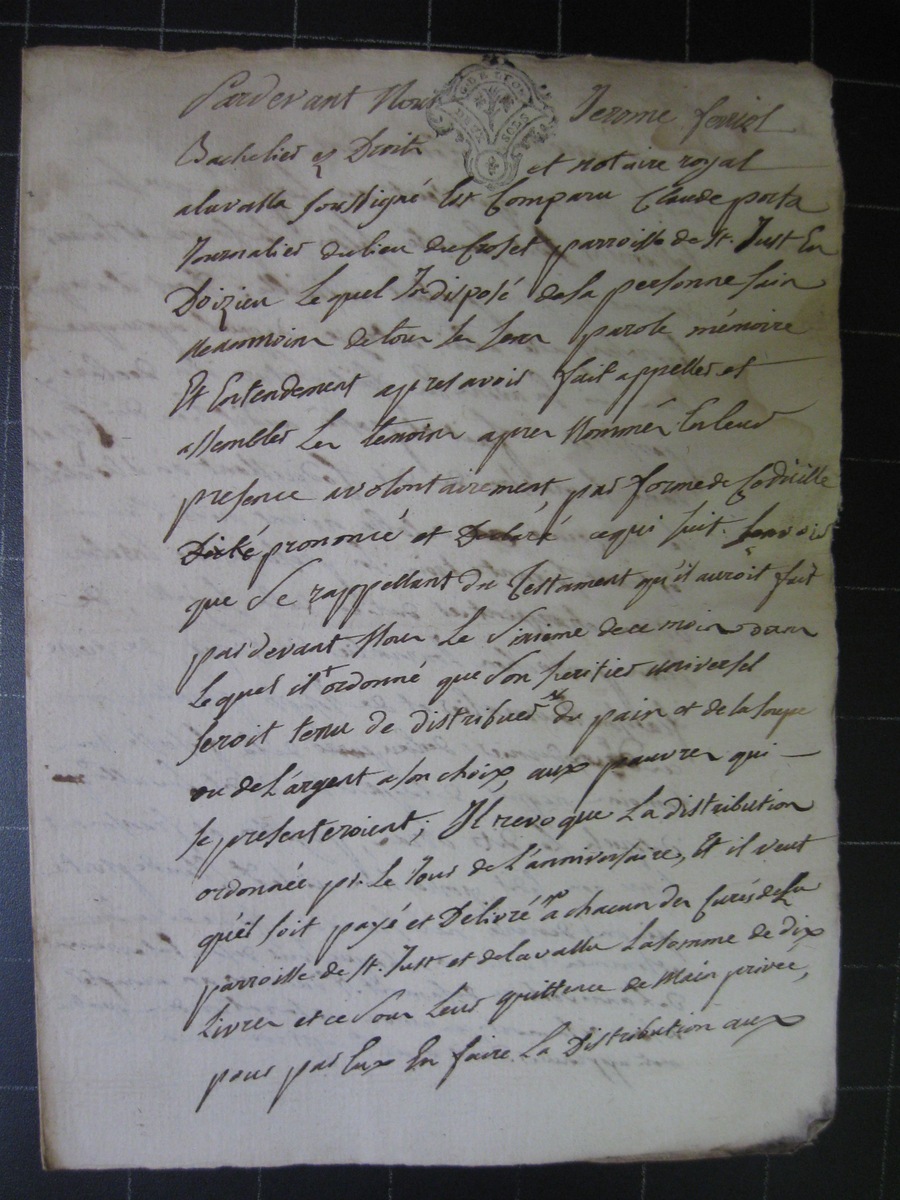 Pardevant Nous Jerome ferriol
Bachelier es Droit et notaire royal
alavalla soussigné Est Comparu Claude porta
Journalier du lieu du Croset parroisse de st. Just En
Doizieu Lequel Indisposé de sa personne sain
neanmoins de tous ses sens parole mémoire
Et Entendement apres avoir fait appeller et
assembler Les temoins apres Nommés En leur
presence a volontairement par forme de Codicille
Dicté prononcé et Declaré ce qui suit. Scavoir
que Se rappellant du Testament qu'il auroit fait
pardevant Nous Le Sixieme de ce mois dans
Lequel il ordonné que Son heritier universel
seroit tenu de distribuer du pain et de la soupe
ou de L'argent a son choix, aux pauvres qui
se presenteroient; Il revoque La distribution
ordonnée pr. Le Jour de L'anniversaire, Et il veut
qu'il soit payé et Délivré a chacun des Curés de La
parroisse de st. Just et de lavalla La somme de dix
Livres et ce Sous Leur quittence de Main privée,
pour par Eux En faire La Distribution aux